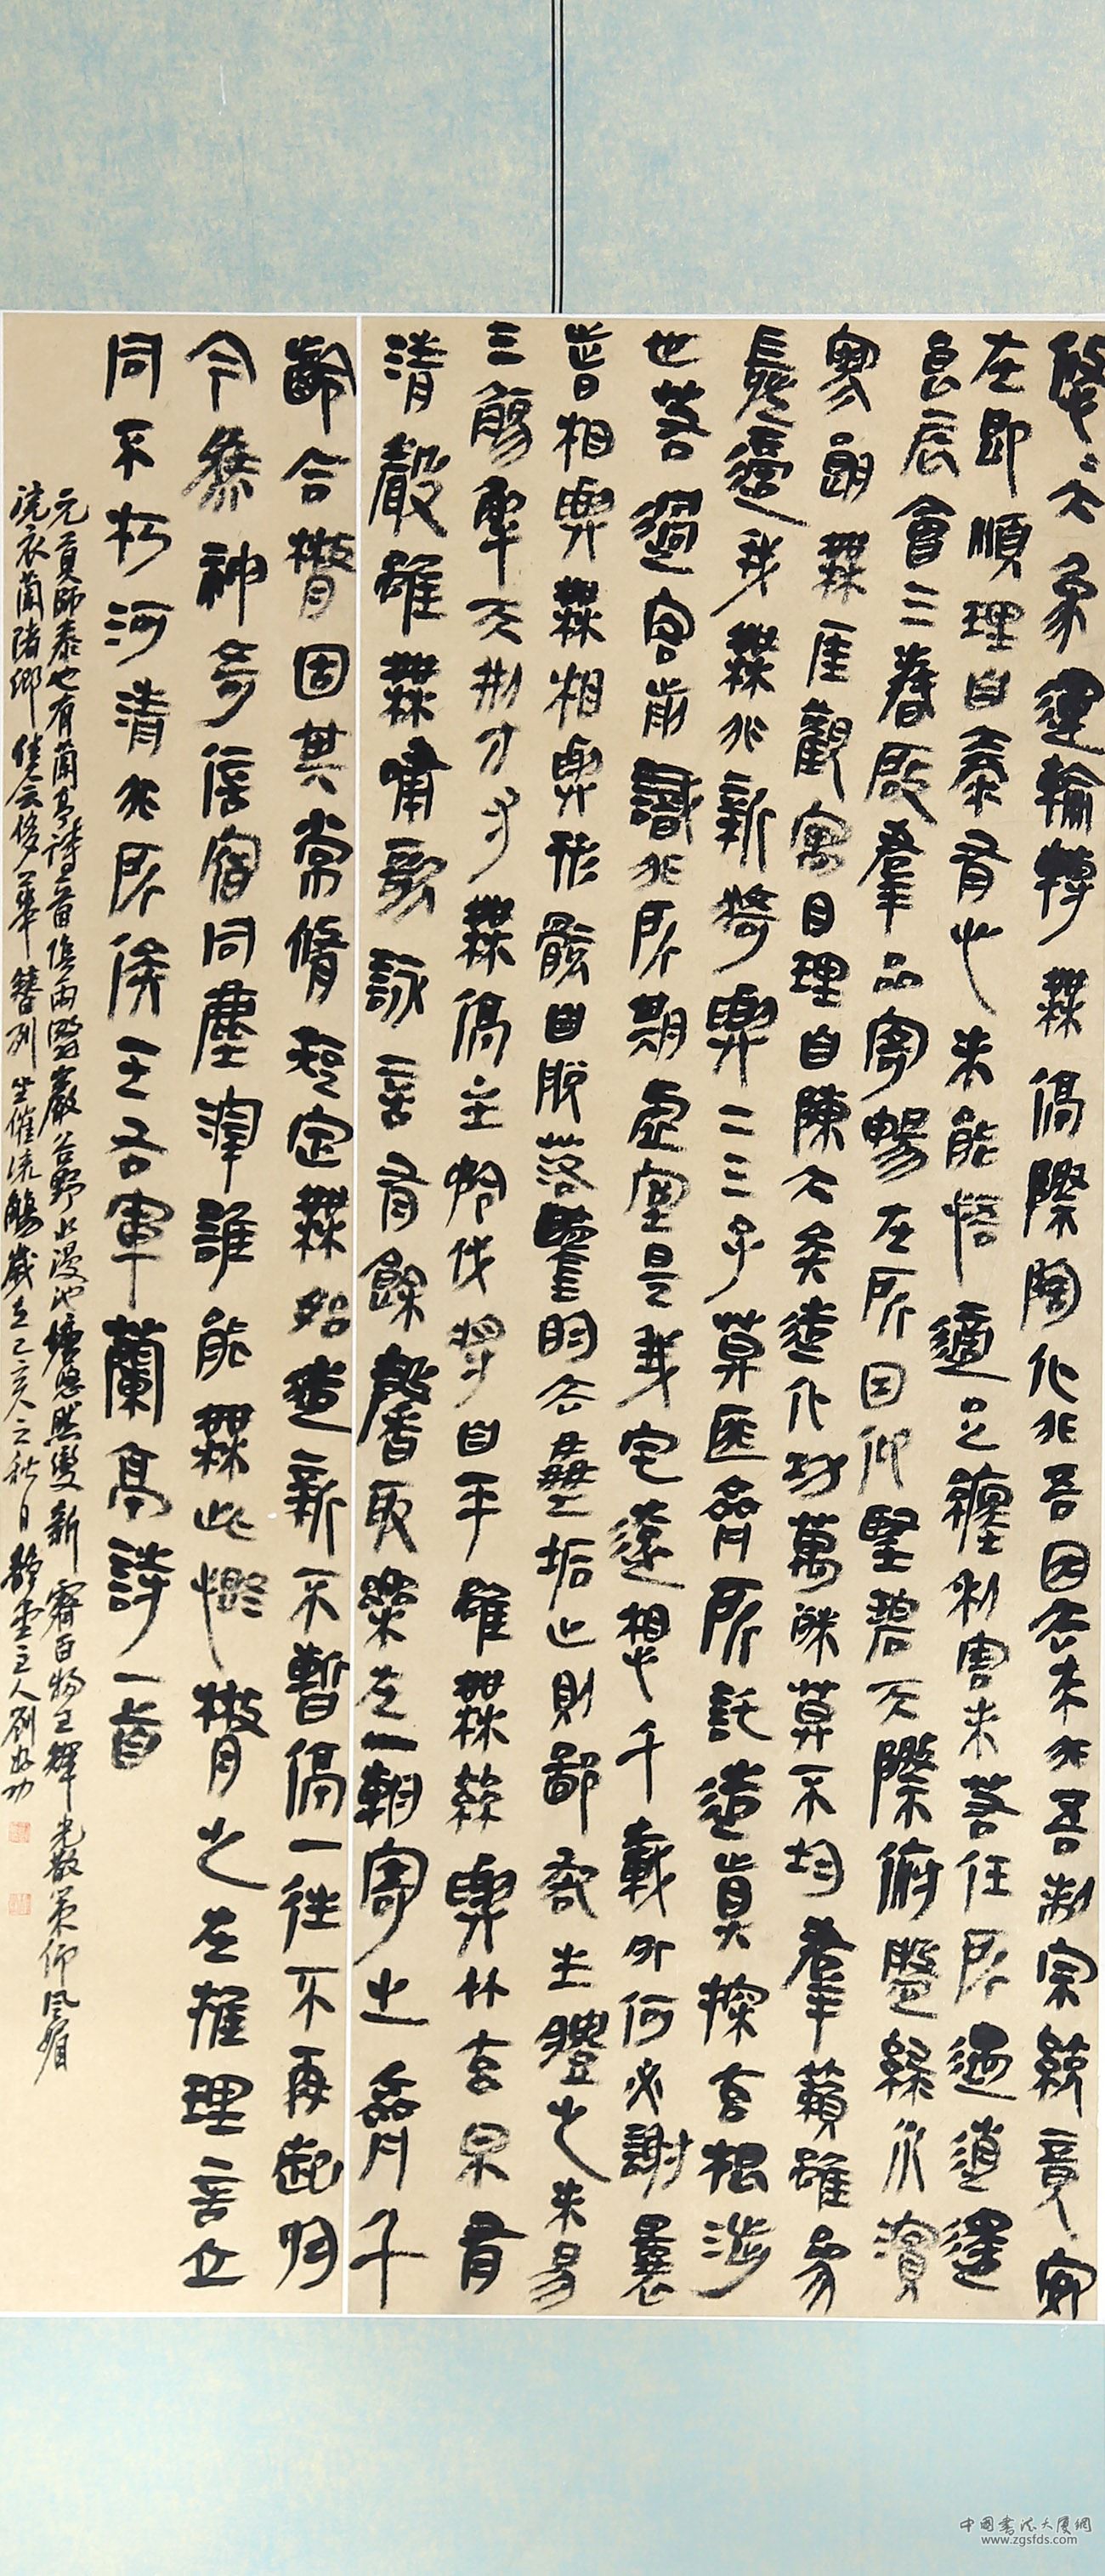 悠悠大象運輪轉無停際陶化非吾因去來非吾制宗統竟安
在即順理自泰有心未能悟適足纏利害未若任所遇逍遙
良辰會三春啟羣品寄暢在所因仰望碧天際俯磐綠水濱
寥朗無厓觀寓目理自陳大矣造化功萬殊莫不均羣籟雖參
差適我無非新猗與二三子莫匪齊所託造真探玄根涉
世若過客前識非所期虛室是我宅遠想千載外何必謝曩
昔相與無相與形骸自脫落鑒明去塵垢止則鄙吝生體之未易
三觴解天刑方寸無停主矜伐將自平雖無絲與竹玄泉有
清聲雖無嘯歌詠言有餘馨取樂在一朝寄之齊千
齡合散固其常脩短定無始造新不暫停一往不再起於
今為神奇信宿同塵滓誰能無此慨散之在推理言立
同不朽河清非所俟王右軍蘭亭詩一首
元貢師泰也有蘭亭詩一首積雨翳巖谷野水漫池塘忽然變新霽百物正輝光散策仰風
浣衣蘭渚鄉佳會侈華簪列坐催流觴歲在己亥之秋月主人劉
中國書法大廈網
www.zgsfds.com